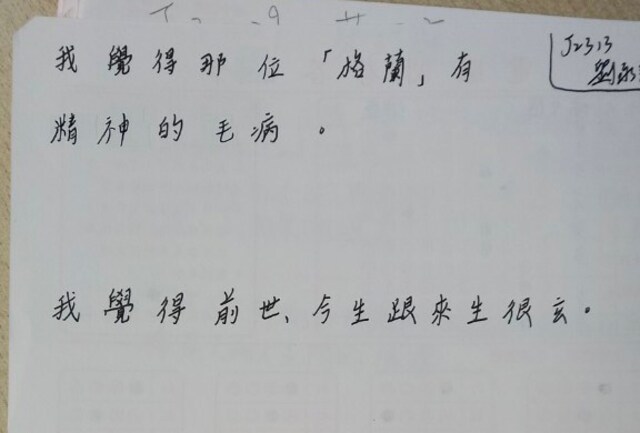 J2313
我覺得那位「格蘭」有
精神的毛病。
我覺得前世、今生跟來生很玄。